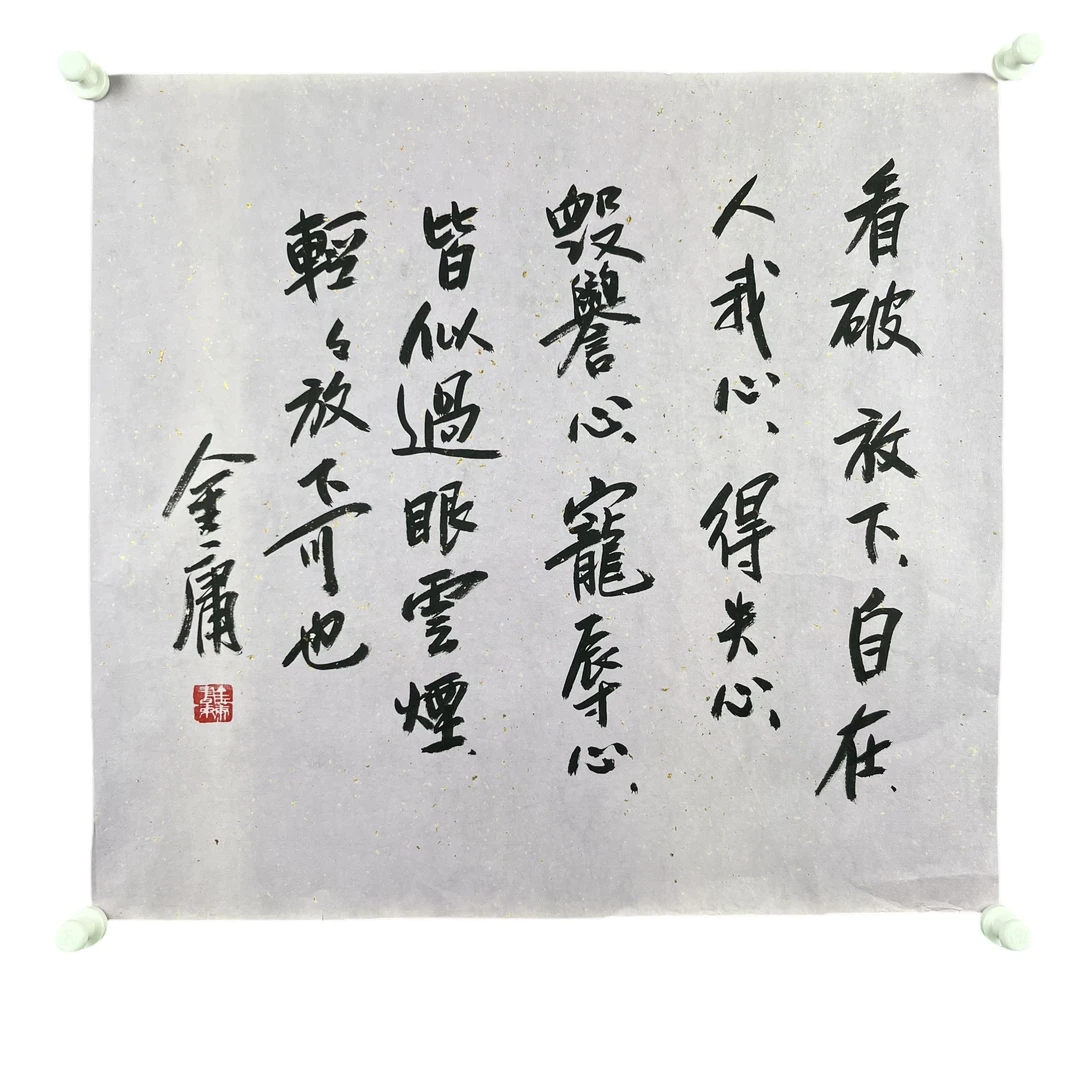 看破 放下、自在、
人我心、得失心、
毀譽心、寵辱心、
皆似過眼雲煙、
輕々放下可也
金庸